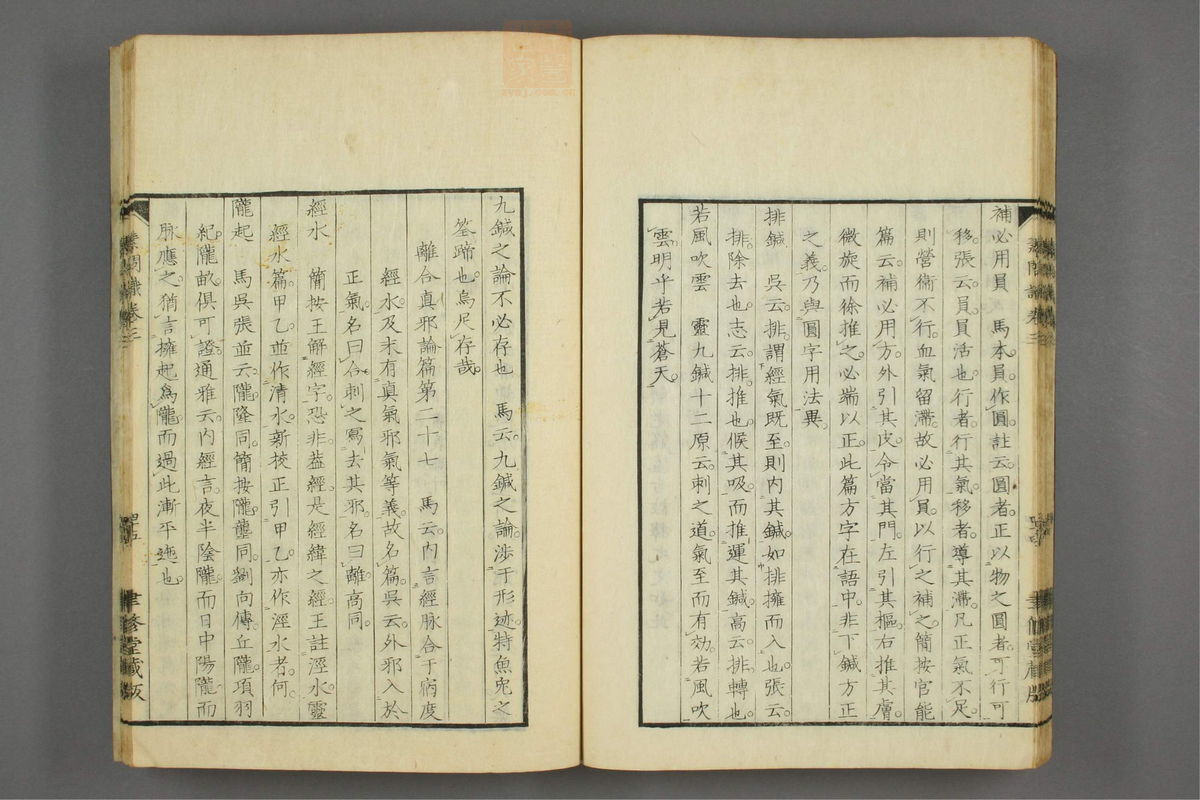 補必用員　馬本員作圓註云圓者正以物之圓者可行可
移張云員員活也行者行其氣移者導其滯凡正氣不足
則營衞不行血氣留滯故必用員以行之補之簡按官能
篇云補必用方外引其皮令當其門左引其樞右推其膚
微旋而徐推之必端以正此篇方字在語中非下鍼方正
之義乃與圓字用法異
排鍼　吳云排謂經氣既至則内其鍼如排擁而入也張云
排除去也志云排推也候其吸而推運其鍼高云排轉也
若風吹雲　靈九鍼十二原云刺之道氣至而有効若風吹
雲明乎若見蒼天
九鍼之論不必存也　馬云九鍼之論渉于形迹特魚兎之
筌蹄也烏足存哉
離合真邪論篇第二十七　馬云内言經脉合于病度
經水及末有真氣邪氣等義故名篇吳云外邪入於
正氣名曰合刺之寫去其邪名曰離高同
經水　簡按王解經字恐非葢經是經緯之經王註涇水靈
經水篇甲乙並作清水新挍正引甲乙亦作涇水者何
隴起　馬吳張並云隴隆同簡按隴壟同劉向傳丘隴項羽
紀隴畝俱可證通雅云内經言夜半陰隴而日中陽隴而
脉應之猶言擁起爲隴而過此漸平迤也
素問識卷三
聿修堂藏版